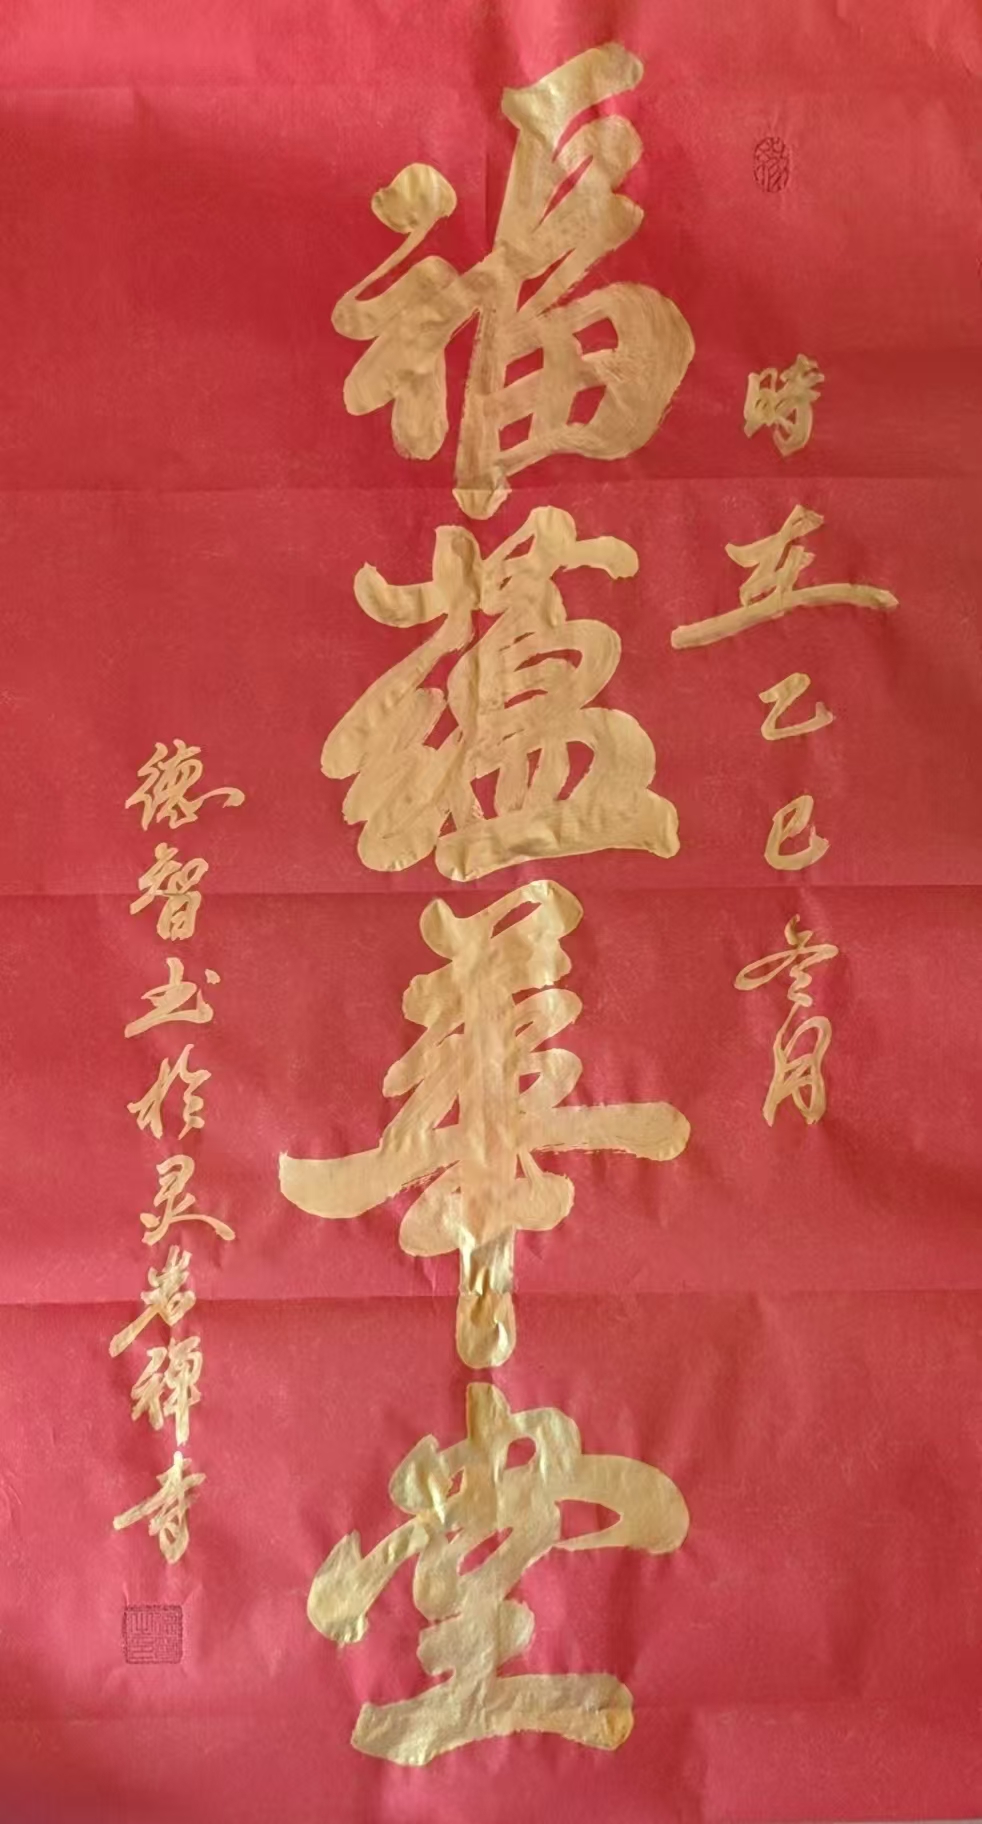 時在乙巳冬月
福蕴華堂
德智书於灵岩禅寺